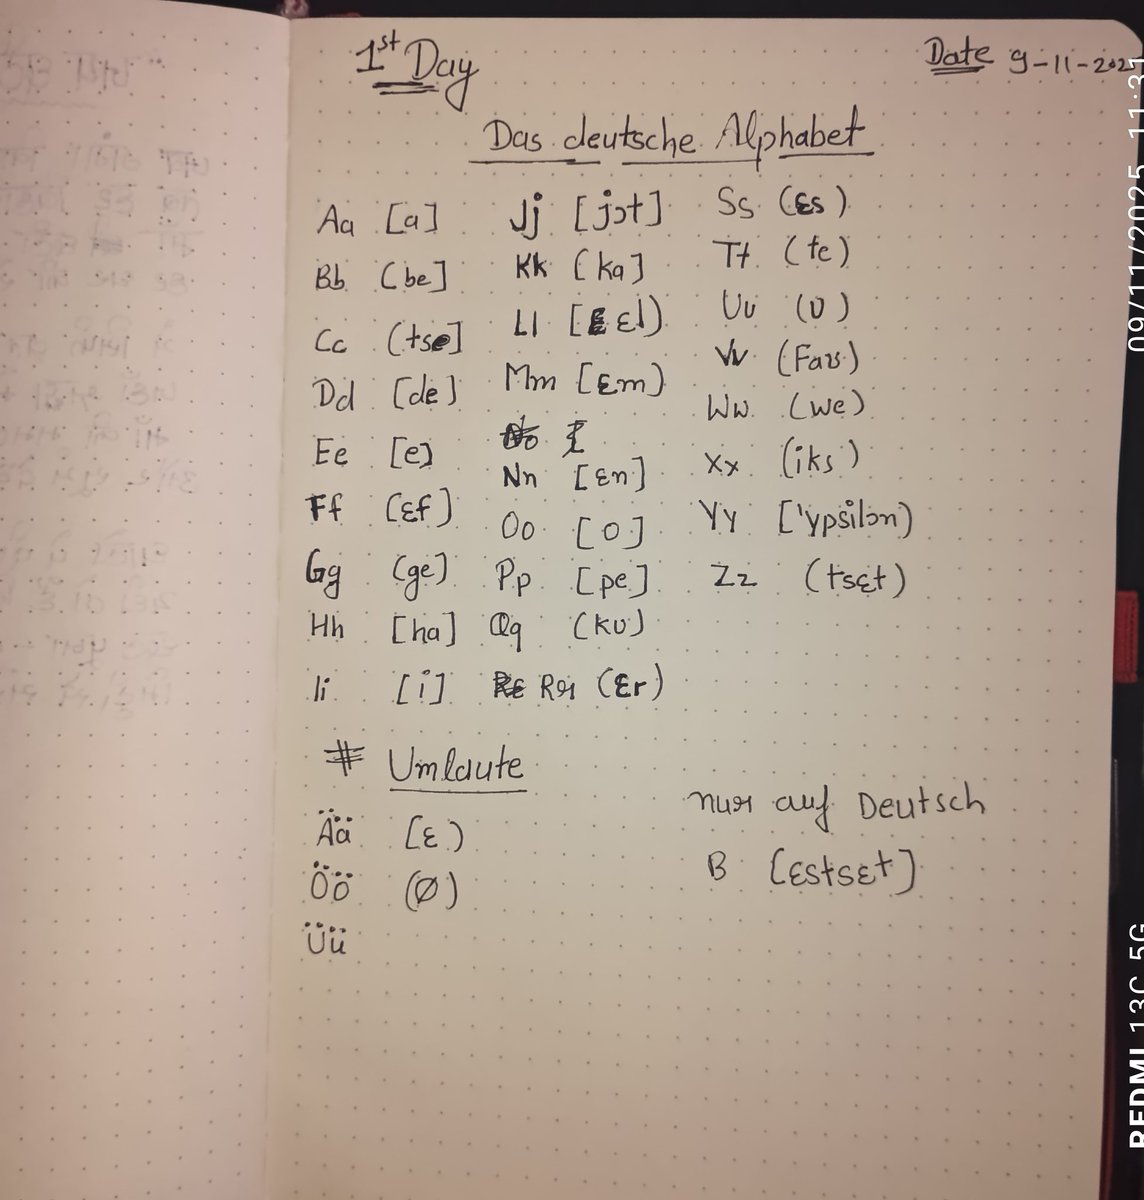 1st Day
Date 9-11-2025
Das deutsche Alphabet
Aa [a]
Bb (be]
Cc (tse]
Dd [de)
Ee [e]
Ff (εf)
Gg (ge)
Hh [ha]
Ii [i]
Jj [jɔt]
Kk (ka]
Ll [εl)
Mm [εm)
Nn [εn]
Oo [o]
Pp [pe]
Qq (kυ)
Rr (εr)
Ss (εs)
Tt (te)
Uu (υ)
Vv (Faυ)
Ww (we)
Xx (iks)
Yy ['ypsilɔn)
Zz (tsεt)
# Umlaute
Ää [ε)
Öö (Ø)
Üü
nur auf Deutsch
B [εstsεt]
09/11/2025 11:31
REDMI 13C 5G